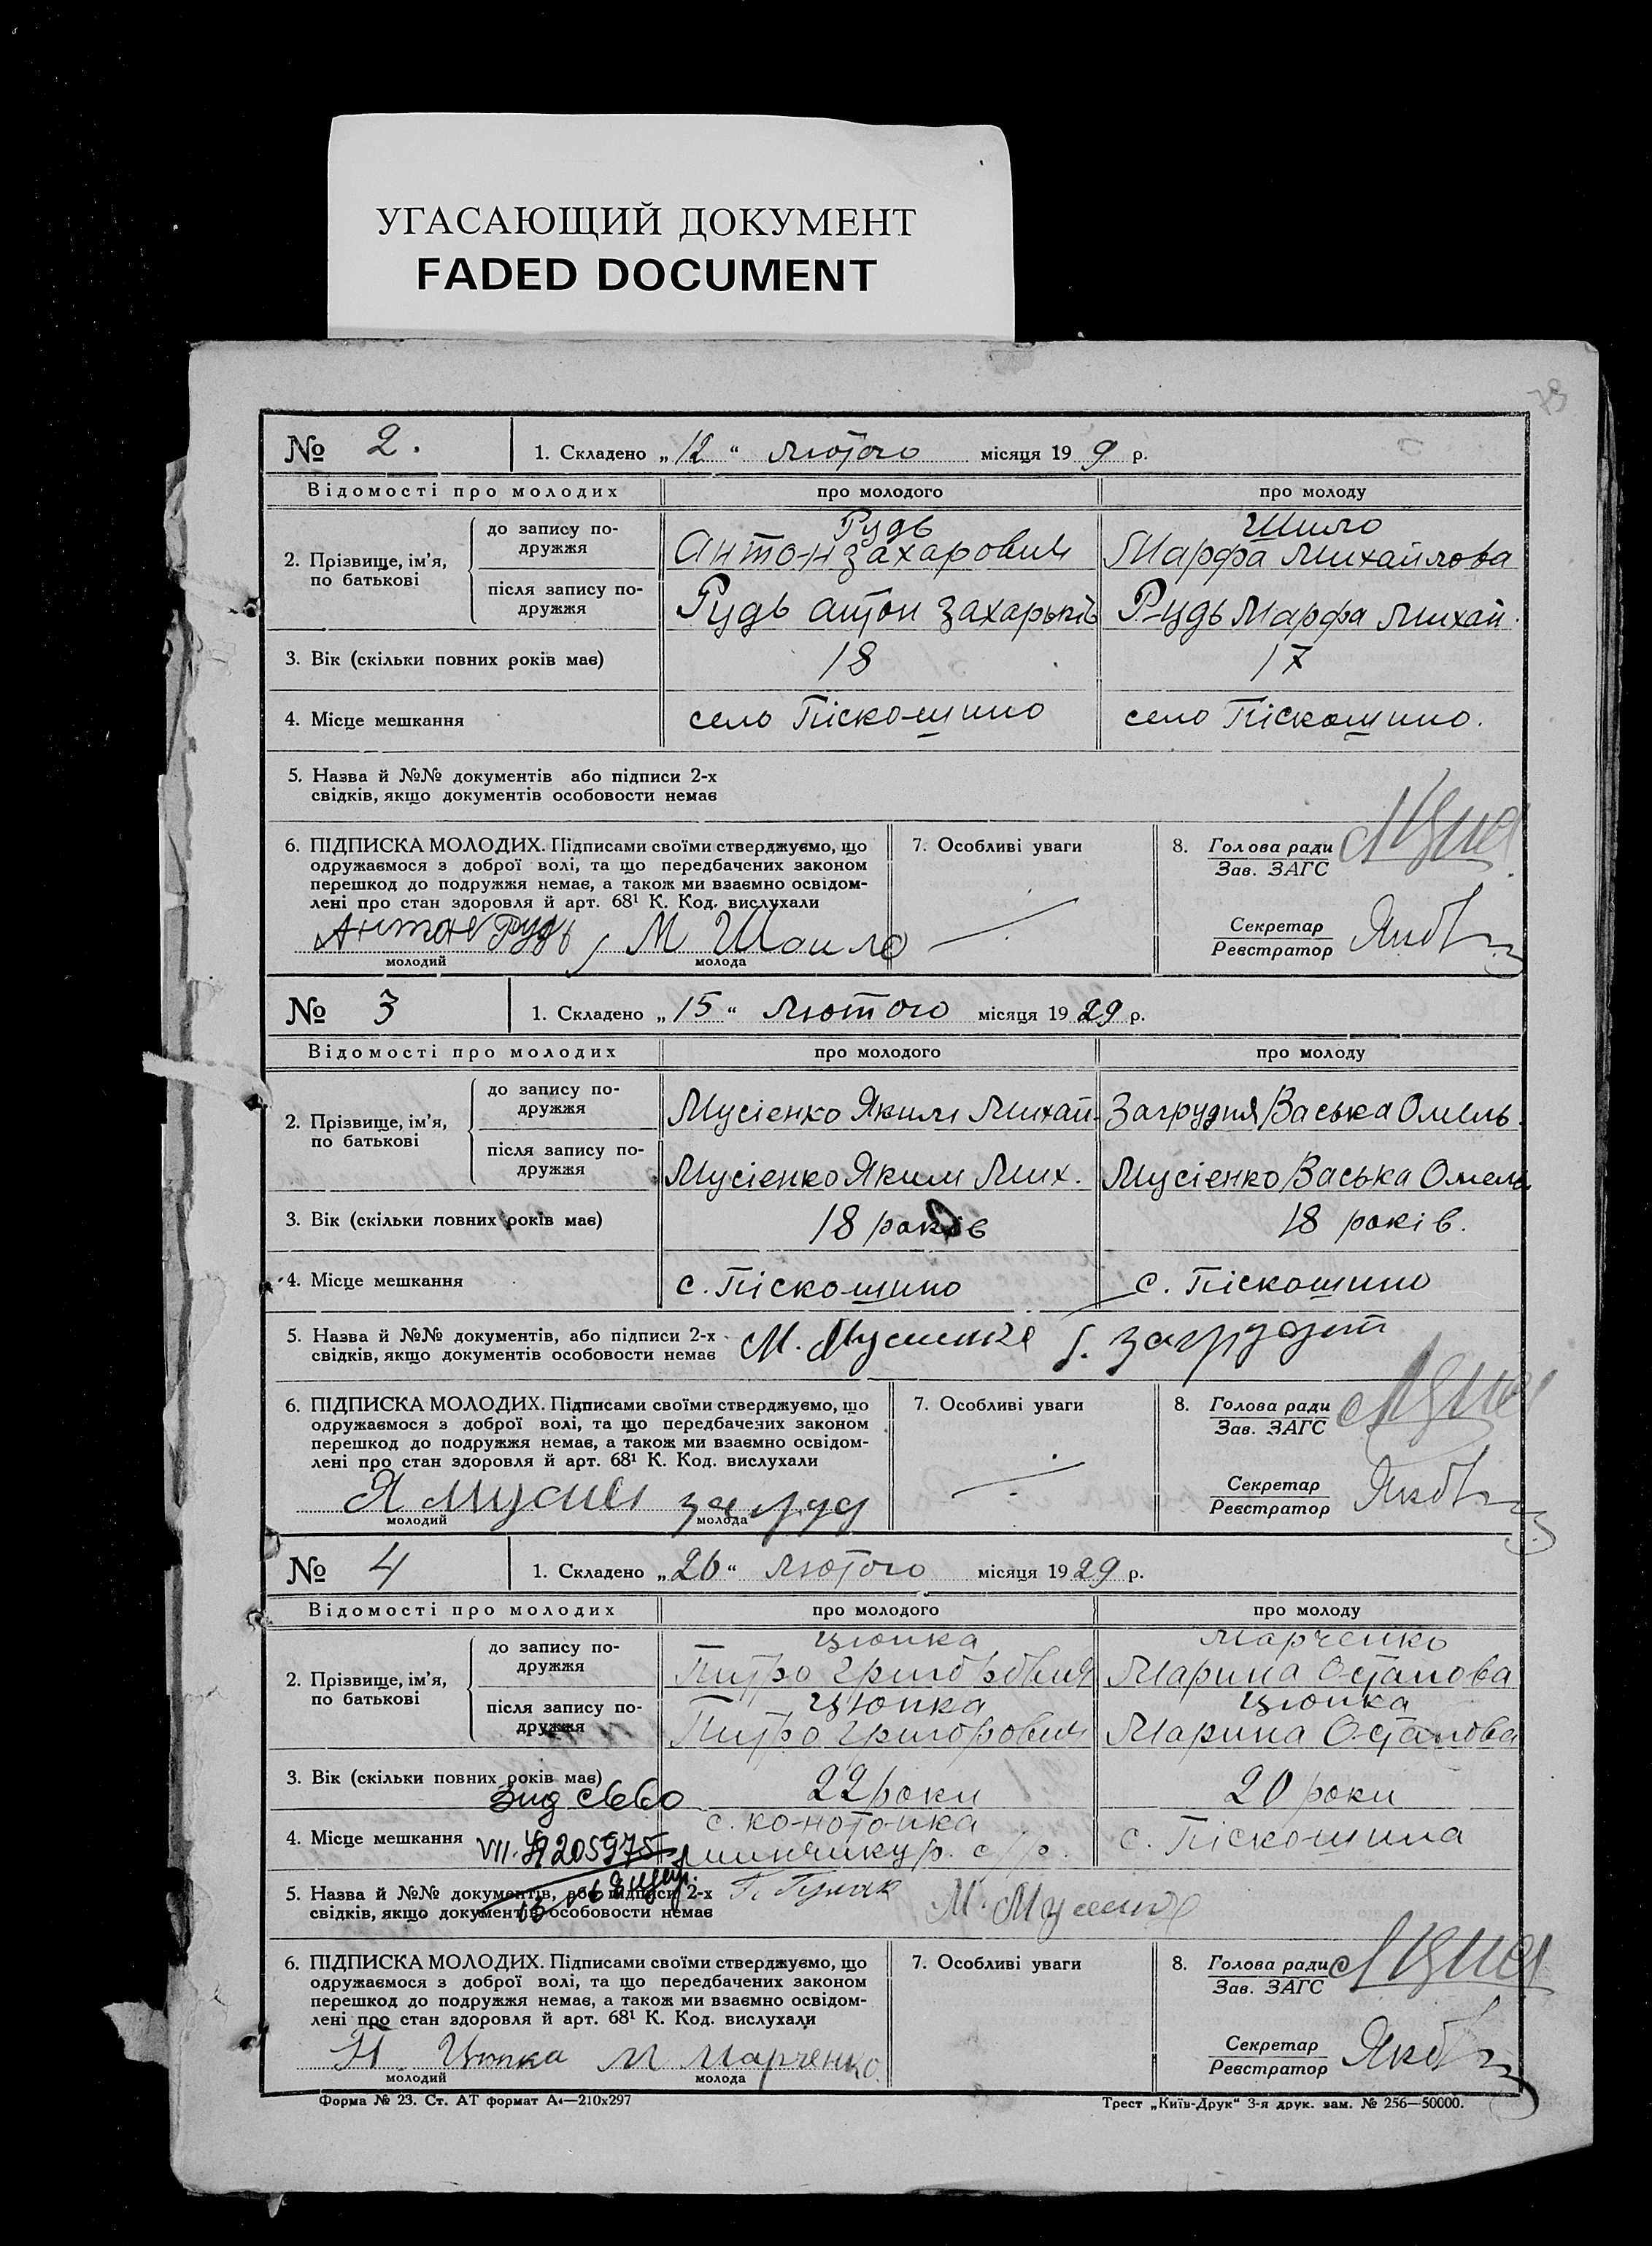 УГАСАЮЩИЙ ДОКУМЕНТ
FADED DOCUMENT
73
№ 2. 1. Складено „12“ лютого місяця 19 9 р.
Відомості про молодих про молодого про молоду
2. Прізвище, ім'я, по батькові
до запису подружжя Рудь Антон Захарович Шило Марфа Михайлова
після запису подружжя Рудь Антон Захарьків Рудь Марфа Михай.
3. Вік (скільки повних років має) 18 17
4. Місце мешкання село Піскошино село Піскошино.
5. Назва й №№ документів або підписи 2-х
свідків, якщо документів особовости немає
6. ПІДПИСКА МОЛОДИХ. Підписами своїми стверджуємо, що
одружаємося з доброї волі, та що передбачених законом
перешкод до подружжя немає, а також ми взаємно освідом-
лені про стан здоровля й арт. 68¹ К. Код. вислухали
Антон Рудь М Шоило
молодий молода
7. Особливі уваги
8. Голова ради
Зав. ЗАГС
Секретар
Реєстратор
№ 3 1. Складено „15“ лютого місяця 1929 р.
Відомості про молодих про молодого про молоду
2. Прізвище, ім'я, по батькові
до запису подружжя Мусієнко Яким Михай. Загрудня Васька Омель.
після запису подружжя Мусієнко Яким Мих. Мусієнко Васька Омель.
3. Вік (скільки повних років має) 18 років 18 років.
4. Місце мешкання с. Піскошино с. Піскошино
5. Назва й №№ документів, або підписи 2-х
свідків, якщо документів особовости немає
6. ПІДПИСКА МОЛОДИХ. Підписами своїми стверджуємо, що
одружаємося з доброї волі, та що передбачених законом
перешкод до подружжя немає, а також ми взаємно освідом-
лені про стан здоровля й арт. 68¹ К. Код. вислухали
молодий молода
7. Особливі уваги
8. Голова ради
Зав. ЗАГС
Секретар
Реєстратор
№ 4 1. Складено „26“ лютого місяця 1929 р.
Відомості про молодих про молодого про молоду
2. Прізвище, ім'я, по батькові
до запису подружжя Цюпка Питро Григорович Марченко Марина Остапова
після запису подружжя Цюпка Питро Григорович Цюпка Марина Остапова
3. Вік (скільки повних років має) 22 роки 20 роки
4. Місце мешкання с. Конотопка с. Піскошина
VII 205975
5. Назва й №№ документів, або підписи 2-х
свідків, якщо документів особовости немає
6. ПІДПИСКА МОЛОДИХ. Підписами своїми стверджуємо, що
одружаємося з доброї волі, та що передбачених законом
перешкод до подружжя немає, а також ми взаємно освідом-
лені про стан здоровля й арт. 68¹ К. Код. вислухали
Цюпка М Марченко.
молодий молода
7. Особливі уваги
8. Голова ради
Зав. ЗАГС
Секретар
Реєстратор
Форма № 23. Ст. АТ формат А4—210х297
Трест „Київ-Друк“ 3-я друк. зам. № 256—50000.